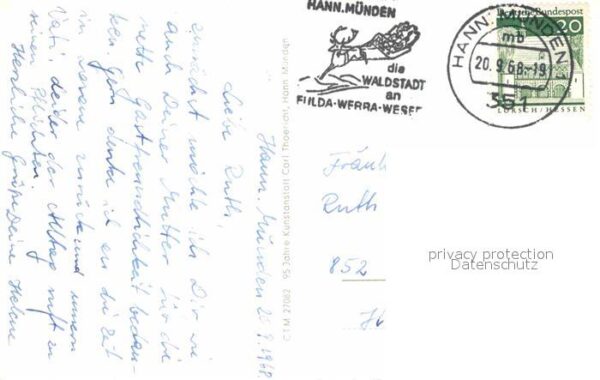 Hann. Münden 20.9.1968
Liebe Ruth,
zunächst möchte ich Dir wie
auch Deiner Mutter für die
nette Gastfreundlichkeit bedan-
ken. Gern denke ich an die Zeit
in zurück und unsern
Vati, leider der Alltag ruft zu
seinen Pflichten.
Herzliche Grüße Deine Helene
CTM 27082 95 Jahre Kunstanstalt Carl Thoericht, Hann. Münden
HANN. MÜNDEN
die
WALDSTADT
an
FULDA-WERRA-WESER
HANN. MÜNDEN 1
mb
20.9.68-19
351
Deutsche Bundespost
20
LORSCH/HESSEN
Fräul
Ruth
852
privacy protection
Datenschutz